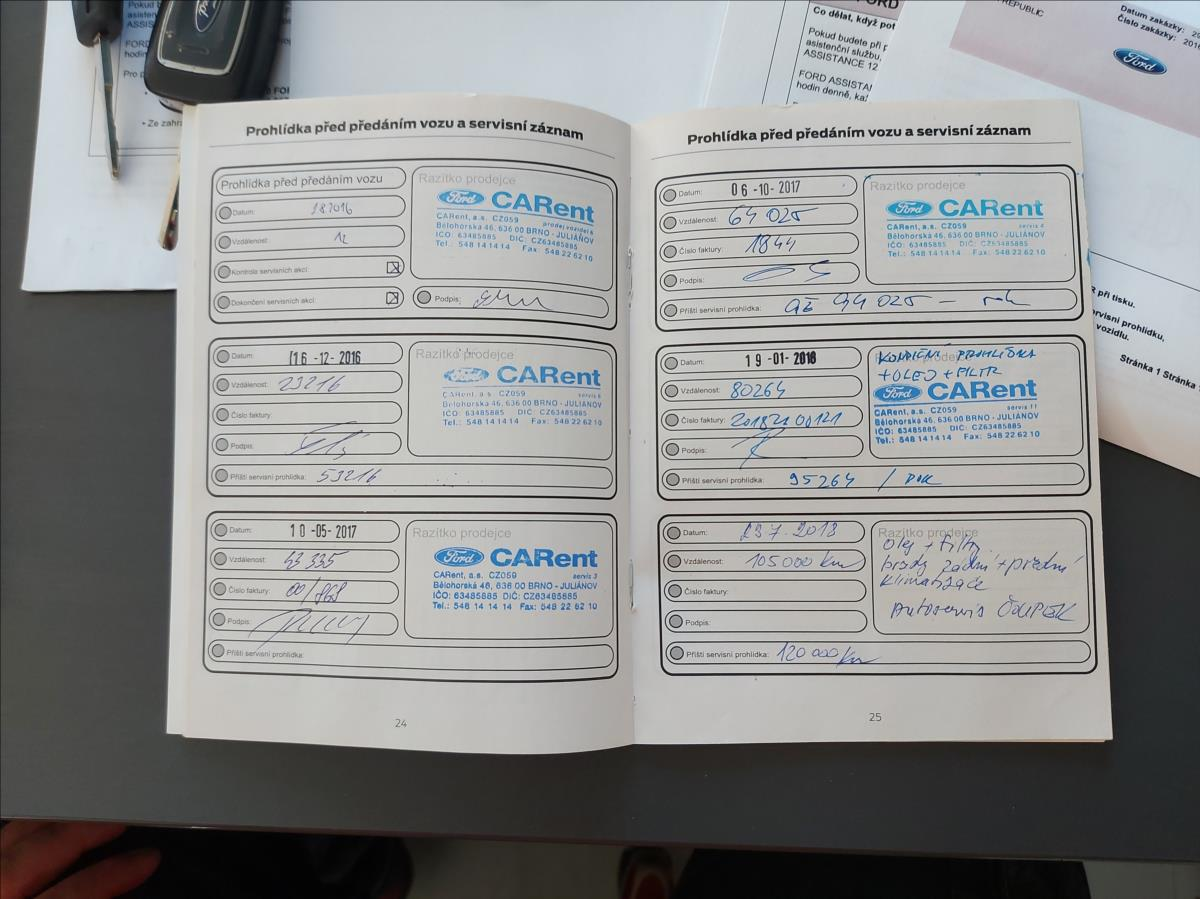 Pokud b
asisten
ASSIST
FORD
hodin
Pro p
• Ze zahra
Ford
FORD
Co dělat, když pot
Pokud budete při p
asistenční službu,
ASSISTANCE 12
FORD ASSISTA
hodin denně, ka
REPUBLIC
Datum zakázky: 29
Číslo zakázky: 2016
Ford
R při tisku.
ervisní prohlídku,
vozidlu.
Stránka 1 Stránka
Prohlídka před předáním vozu a servisní záznam
Prohlídka před předáním vozu
Datum: 187016
Vzdálenost: 12
Kontrola servisních akcí:
Dokončení servisních akcí:
Razítko prodejce
Ford CARent
CARent, a.s. CZ059 prodej vozidel 6
Bělohorská 46, 636 00 BRNO - JULIÁNOV
IČO: 63485885 DIČ: CZ63485885
Tel.: 548 14 14 14 Fax: 548 22 62 10
Podpis:
Datum: 16 -12- 2016
Vzdálenost: 23216
Číslo faktury:
Podpis:
Příští servisní prohlídka: 53216
Razítko prodejce
Ford CARent
CARent, a.s. CZ059 servis 6
Bělohorská 46, 636 00 BRNO - JULIÁNOV
IČO: 63485885 DIČ: CZ63485885
Tel.: 548 14 14 14 Fax: 548 22 62 10
Datum: 10 -05- 2017
Vzdálenost: 43 335
Číslo faktury: 00/868
Podpis:
Příští servisní prohlídka:
Razítko prodejce
Ford CARent
CARent, a.s. CZ059 servis 3
Bělohorská 46, 636 00 BRNO - JULIÁNOV
IČO: 63485885 DIČ: CZ63485885
Tel.: 548 14 14 14 Fax: 548 22 62 10
24
Prohlídka před předáním vozu a servisní záznam
Datum: 06 -10- 2017
Vzdálenost: 64 025
Číslo faktury: 1844
Podpis:
Příští servisní prohlídka: až 94 025 – rok
Razítko prodejce
Ford CARent
CARent, a.s. CZ059 servis 4
Bělohorská 46, 636 00 BRNO - JULIÁNOV
IČO: 63485885 DIČ: CZ63485885
Tel.: 548 14 14 14 Fax: 548 22 62 10
Datum: 19 -01- 2018
Vzdálenost: 80264
Číslo faktury: 20182100121
Podpis:
Příští servisní prohlídka: 95264 / ROK
Razítko prodejce
KONDIČNÍ PROHLÍDKA
+ OLEJ + FILTR
Ford CARent
CARent, a.s. CZ059 servis 11
Bělohorská 46, 636 00 BRNO - JULIÁNOV
IČO: 63485885 DIČ: CZ63485885
Tel.: 548 14 14 14 Fax: 548 22 62 10
Datum: 23 7. 2018
Vzdálenost: 105 000 km
Číslo faktury:
Podpis:
Příští servisní prohlídka: 120 000 km
Razítko prodejce
Olej + filtr
brzdy zadní + přední
klimatizace
Autoservis ČOUPEK
25